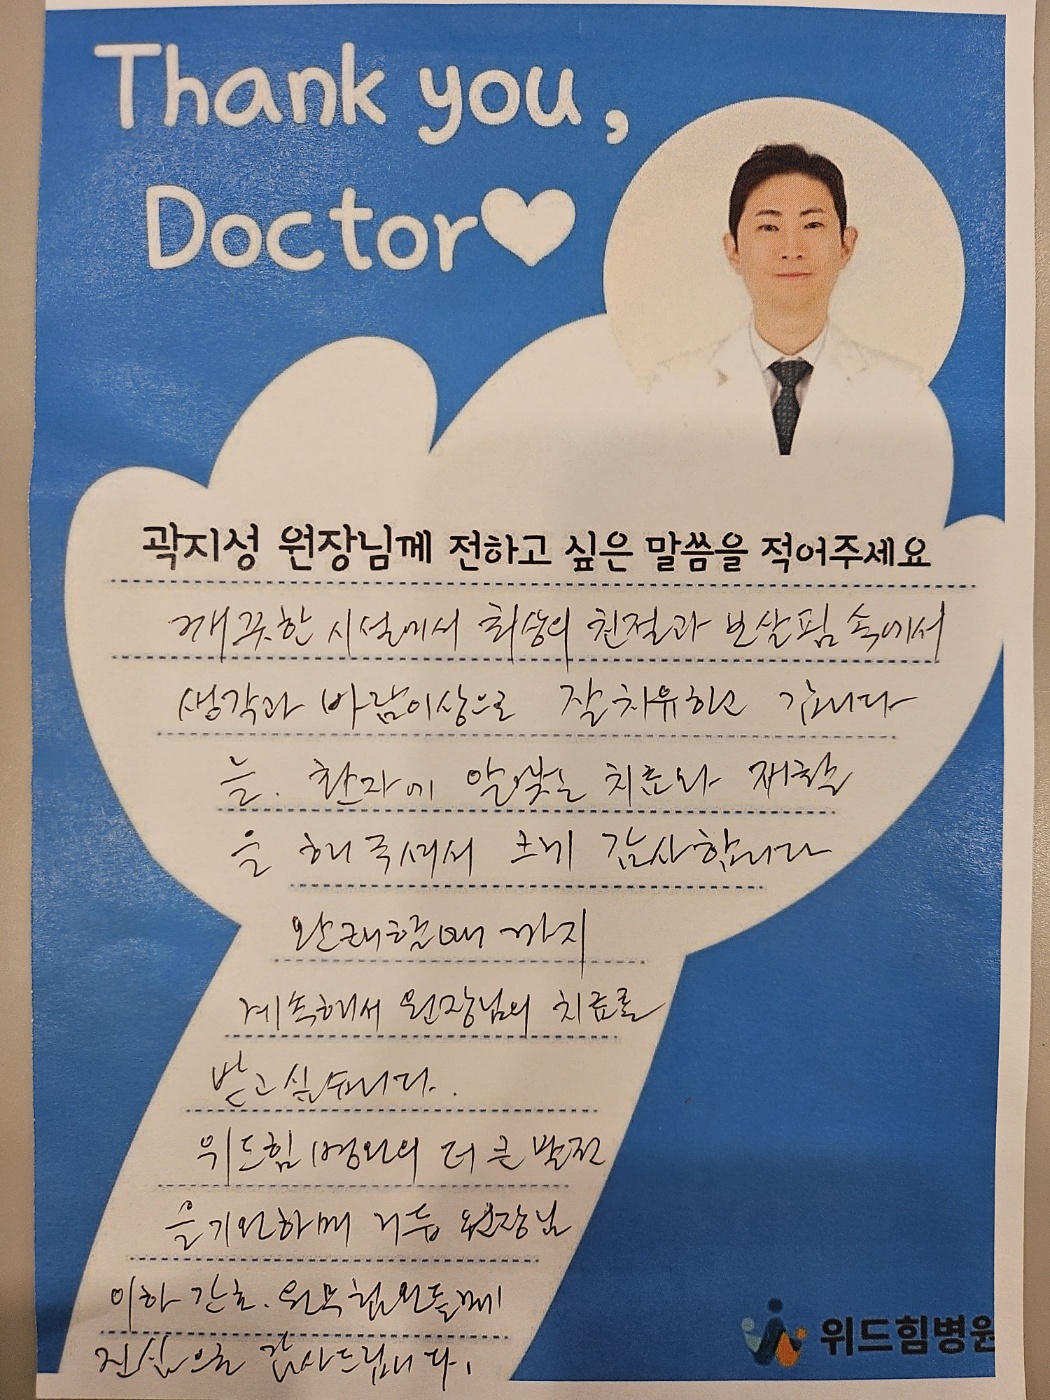 Thank you,
Doctor
곽지성 원장님께 전하고 싶은 말씀을 적어주세요
깨끗한 시설에서 최상의 친절과 보살핌 속에서
생각과 바람이상으로 잘 치유하고 갑니다
늘. 환자에 알맞는 치료와 재활
을 해주셔서 크게 감사합니다
완쾌할때 까지
계속해서 원장님의 치료를
받고 싶습니다.
위드힘 병원의 더 큰 발전
을 기원하며 거듭 원장님
이하 간호. 원무 협원들께
진심으로 감사드립니다.
위드힘병원